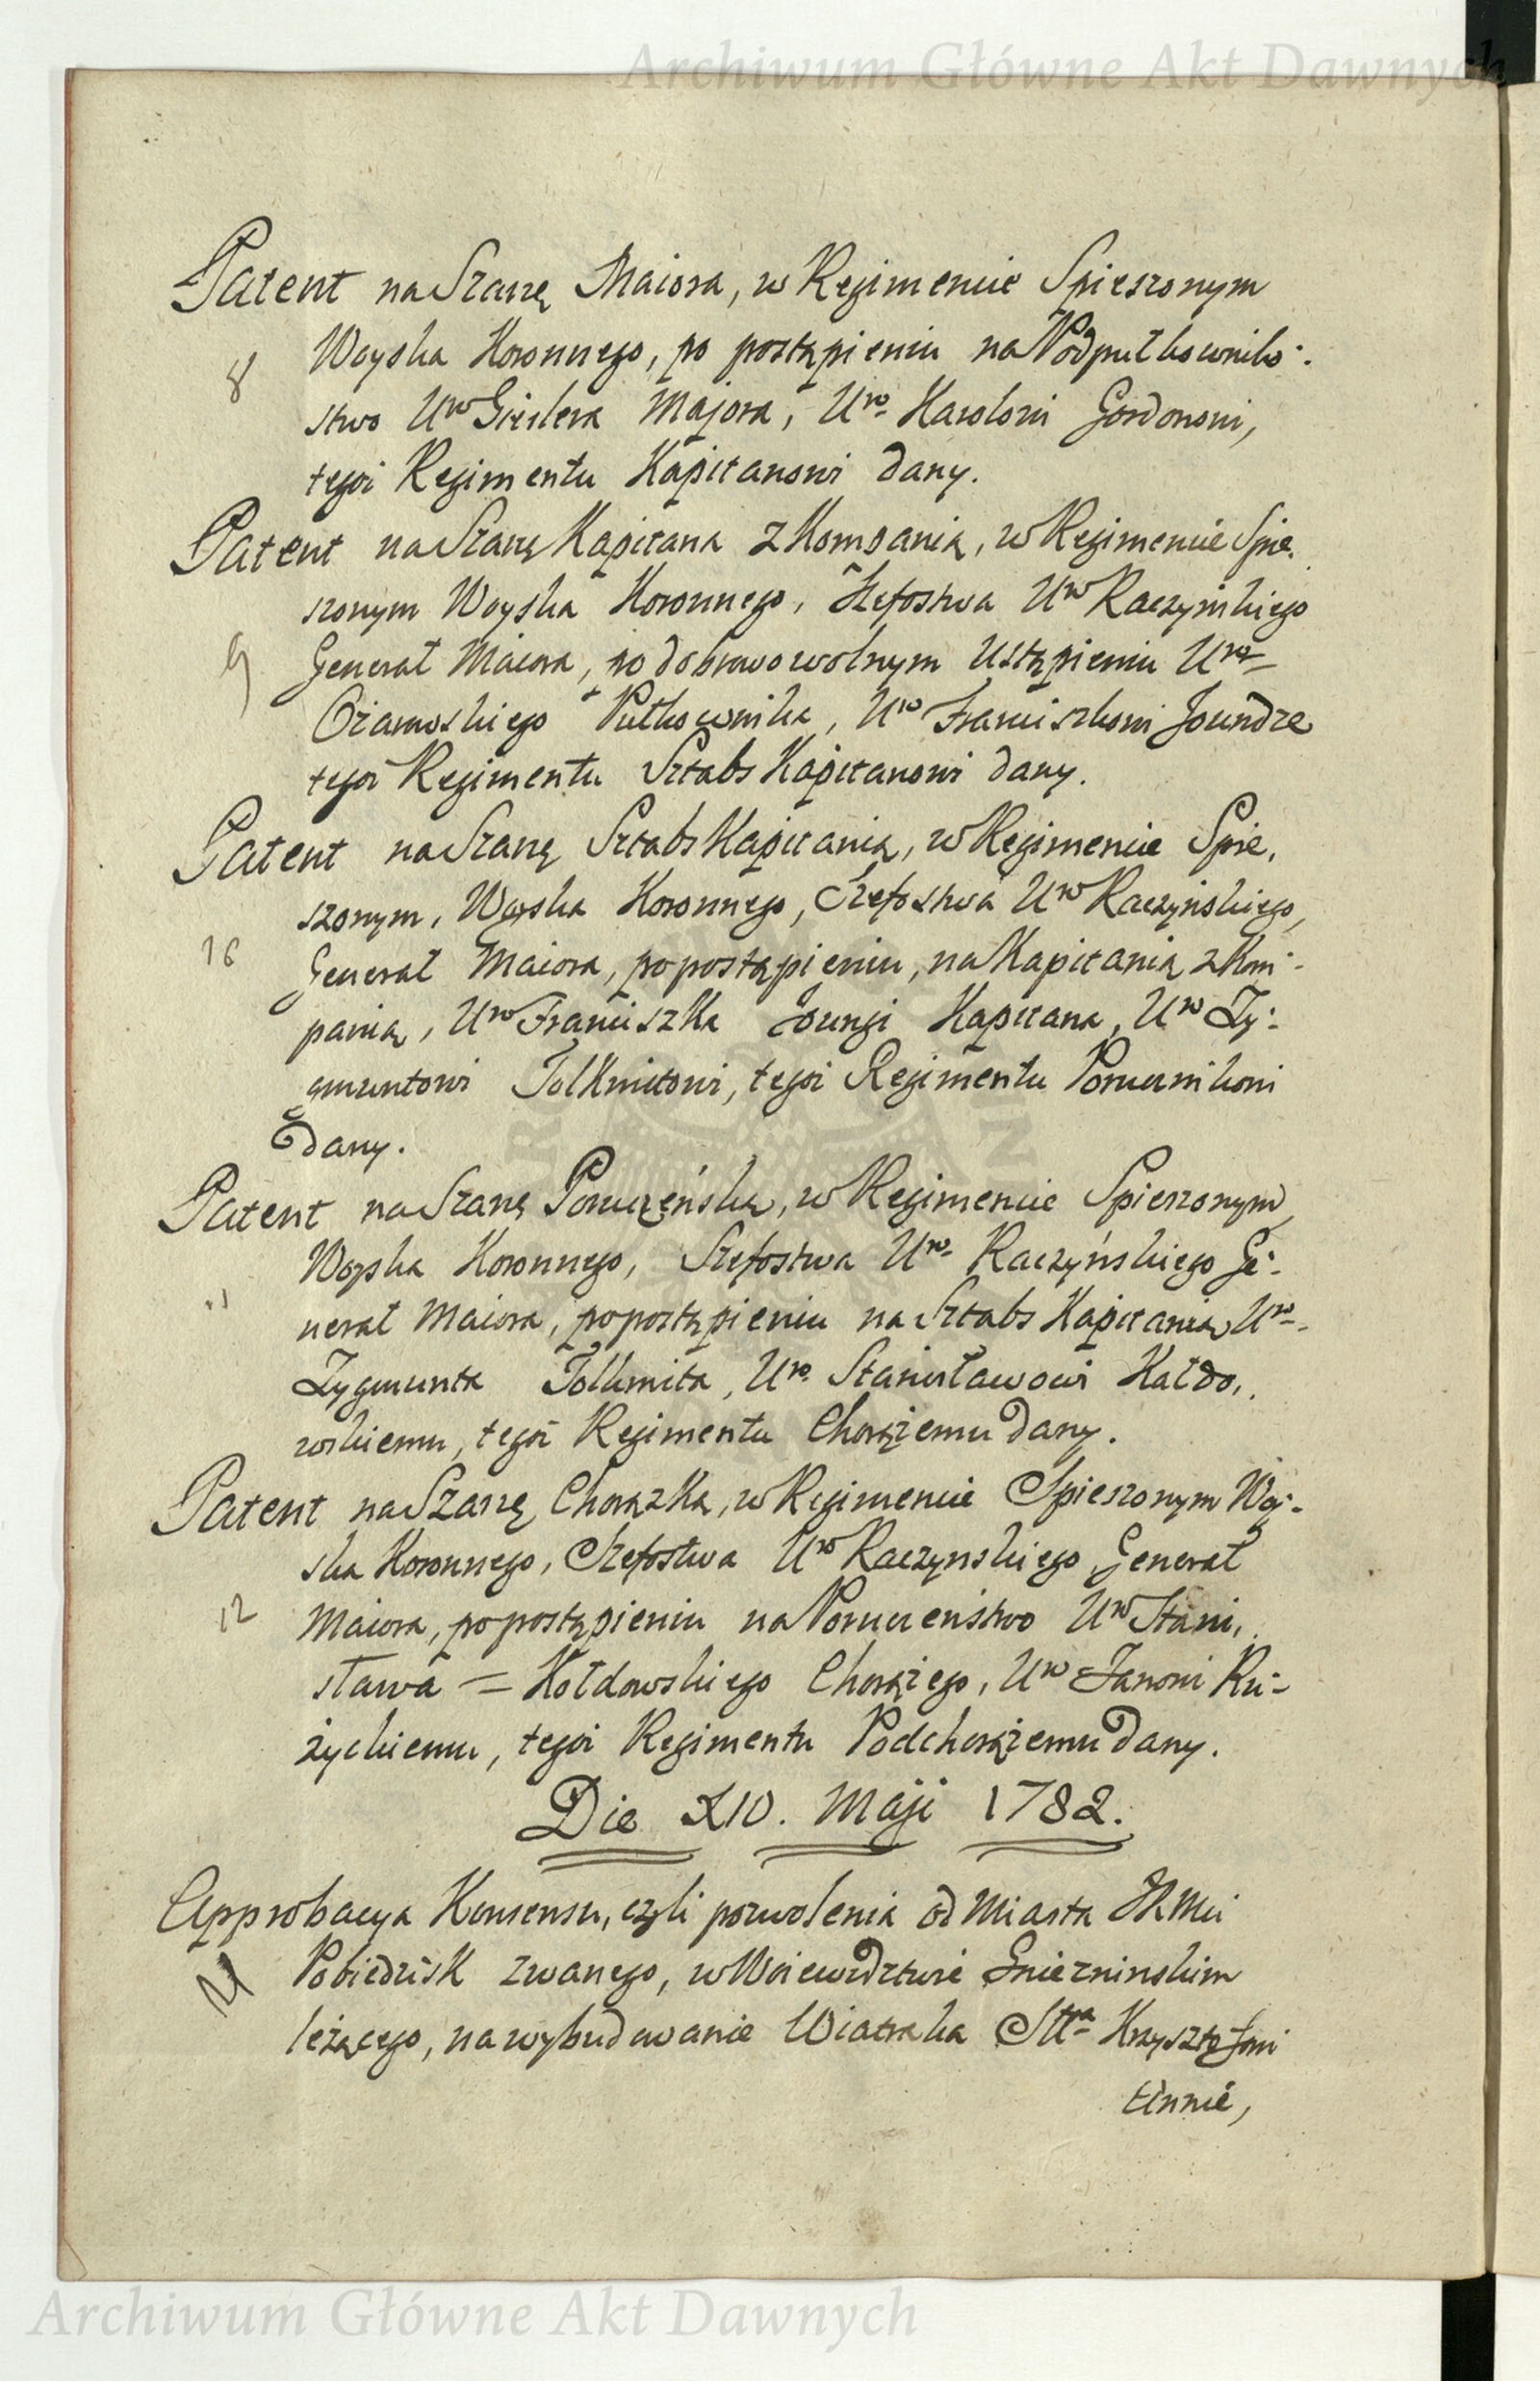 Archiwum Główne Akt Dawnych
Patent na Szarżę Maiora, w Regimencie Spieszonym
8 Woyska Koronnego, po postąpieniu na Podpułkowniko-
stwo Uro Gizlera Majora, Uro Karolowi Gordonowi,
tegoż Regimentu Kapitanowi dany.
Patent na Szarżę Kapitana z Kompanią, w Regimencie Spie,
szonym Woyska Koronnego, Szefostwa Uro Raczyńskiego
9 Generał Maiora, po dobrowolnym Ustąpieniu Uro
Ożarowskiego Pułkownika, Uro Franciszkowi Joundze
tegoż Regimentu Sztabs Kapitanowi dany.
Patent na Szarżę Sztabs Kapitanią, w Regimencie Spie,
szonym, Woyska Koronnego, Szefostwa Uro Raczyńskiego,
10 Generał Maiora, po postąpieniu, na Kapitanią z Kom-
panią, Uro Franciszka Joungi Kapitana, Uro Zy-
gmuntowi Tolkmitowi, tegoż Regimentu Porucznikowi
dany.
Patent na Szarżę Poruczeńską, w Regimencie Spieszonym
Woyska Koronnego, Szefostwa Uro Raczyńskiego Ge-
11 nerał Maiora, po postąpieniu na Sztabs Kapitanią Uro
Zygmunta Tolkmita, Uro Stanisławowi Kałdo,
wskiemu, tegoż Regimentu Chorążemu dany.
Patent na Szarżę Chorązką, w Regimencie Spieszonym Woy-
ska Koronnego, Szefostwa Uro Raczynskiego Generał
12 Maiora, po postąpieniu na Poruczeństwo Uro Stani,
sława = Kołdowskiego Chorążego, Uro Janowi Ru-
życkiemu, tegoż Regimentu Podchorążemu dany.
Die XIO. Maji 1782.
Approbacya Konsensu, czyli pozwolenia od Miasta JKMci
Pobiedzisk zwanego, w Woiewodztwie Gniezninskim
leżącego, na wybudowanie Wiatraka Stta Krzysztofowi
tinnie,
Archiwum Główne Akt Dawnych